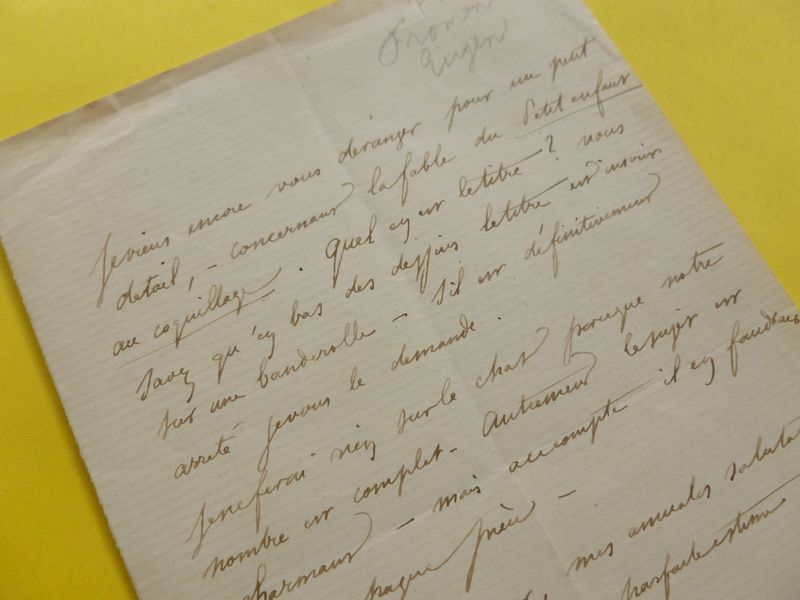 Froment
Eugène
Je viens encore vous déranger pour un petit
détail, - concernant la fable du Petit enfant
au coquillage. Quel en est le titre ? vous
savez qu'en bas des dessins le titre est inscrit
sur une banderolle - s'il est définitivement
arrêté je vous le demande.
Je ne ferai rien sur le chat parceque notre
nombre est complet - Autrement le sujet est
charmant - mais à ce compte il en faudrait
chaque pièce -
mes amicales salutat
parfaite estime